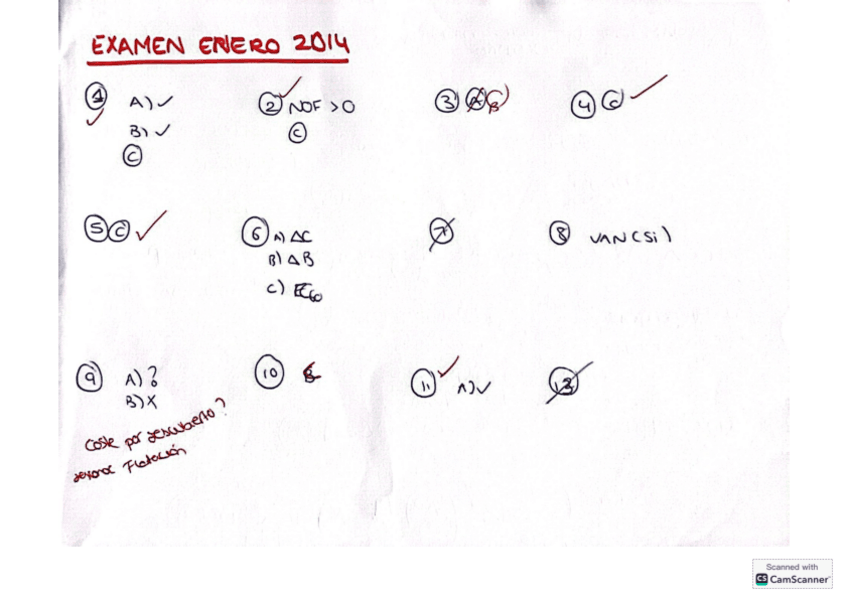 EXAMEN ENERO 2014
1 A) ✓
B) ✓
C
2 NOF >0
C
3
4 C
5 C
6 A) ΔC
B) ΔB
C)
7
8 VAN (Si)
9 A) ?
B) X
Coste por descubierto?
Flotación
10
11 A) ✓
Scanned with
CS CamScanner